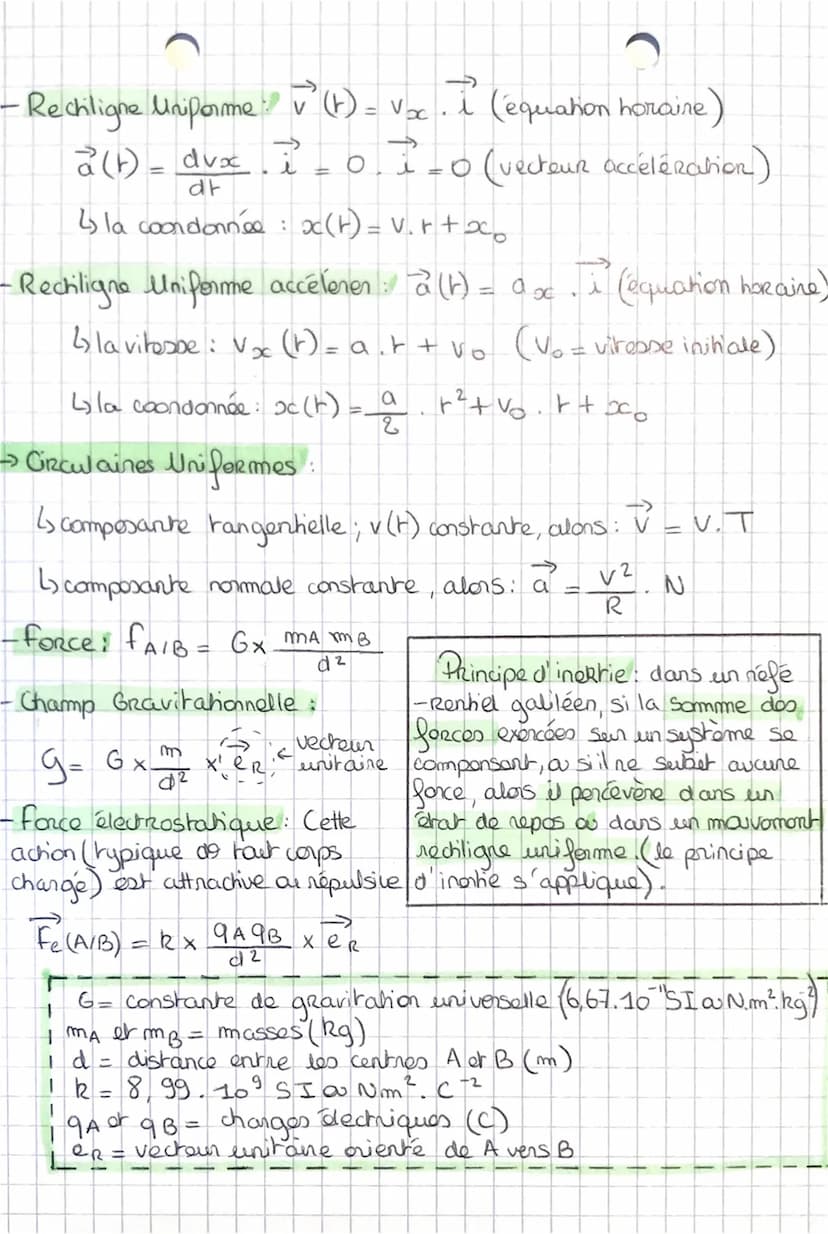 - Rectiligne Uniforme : v⃗(t) = vx . i⃗ (équation horaire)
a⃗(t) = dvx/dt . i⃗ = 0 . i⃗ = 0 (vecteur accélération)
↳ la coordonnée : x(t) = v.t + x₀
- Rectiligne Uniforme accélerer : a⃗(t) = ax . i⃗ (équation horaire)
↳ la vitesse : vx(t) = a.t + v₀ (V₀ = vitesse initiale)
↳ la coordonnée : x(t) = a/2 . t² + v₀ . t + x₀
→ Circulaires Uniformes :
↳ composante tangentielle ; v(t) constante, alors : v⃗ = V.T
↳ composante normale constante, alors : a⃗ = V²/R . N
- Force : fA/B = G x mA mB/d²
- Champ Gravitationnelle :
G = G x m/d² x e⃗R ← vecteur
unitaire
- Force électrostatique : Cette
action (typique de tout corps
chargé) est attractive ou répulsive
F⃗e(A/B) = k x qA qB/d² x e⃗R
Principe d'inertie : dans un réfé
-rentiel galiléen, si la somme des
forces exercées sur un système se
compensant, ou s'il ne subit aucune
force, alors il percévère dans un
état de repos ou dans un mouvement
rectiligne uniforme. (le principe
d'inertie s'applique).
G = constante de gravitation universelle (6,67.10⁻¹¹ SI ou N.m².kg²)
mA et mB = masses (kg)
d = distance entre les centres A et B (m)
k = 8,99.10⁹ SI ou Nm².C⁻²
qA et qB = charges électriques (C)
eR = vecteur unitaire orienté de A vers B